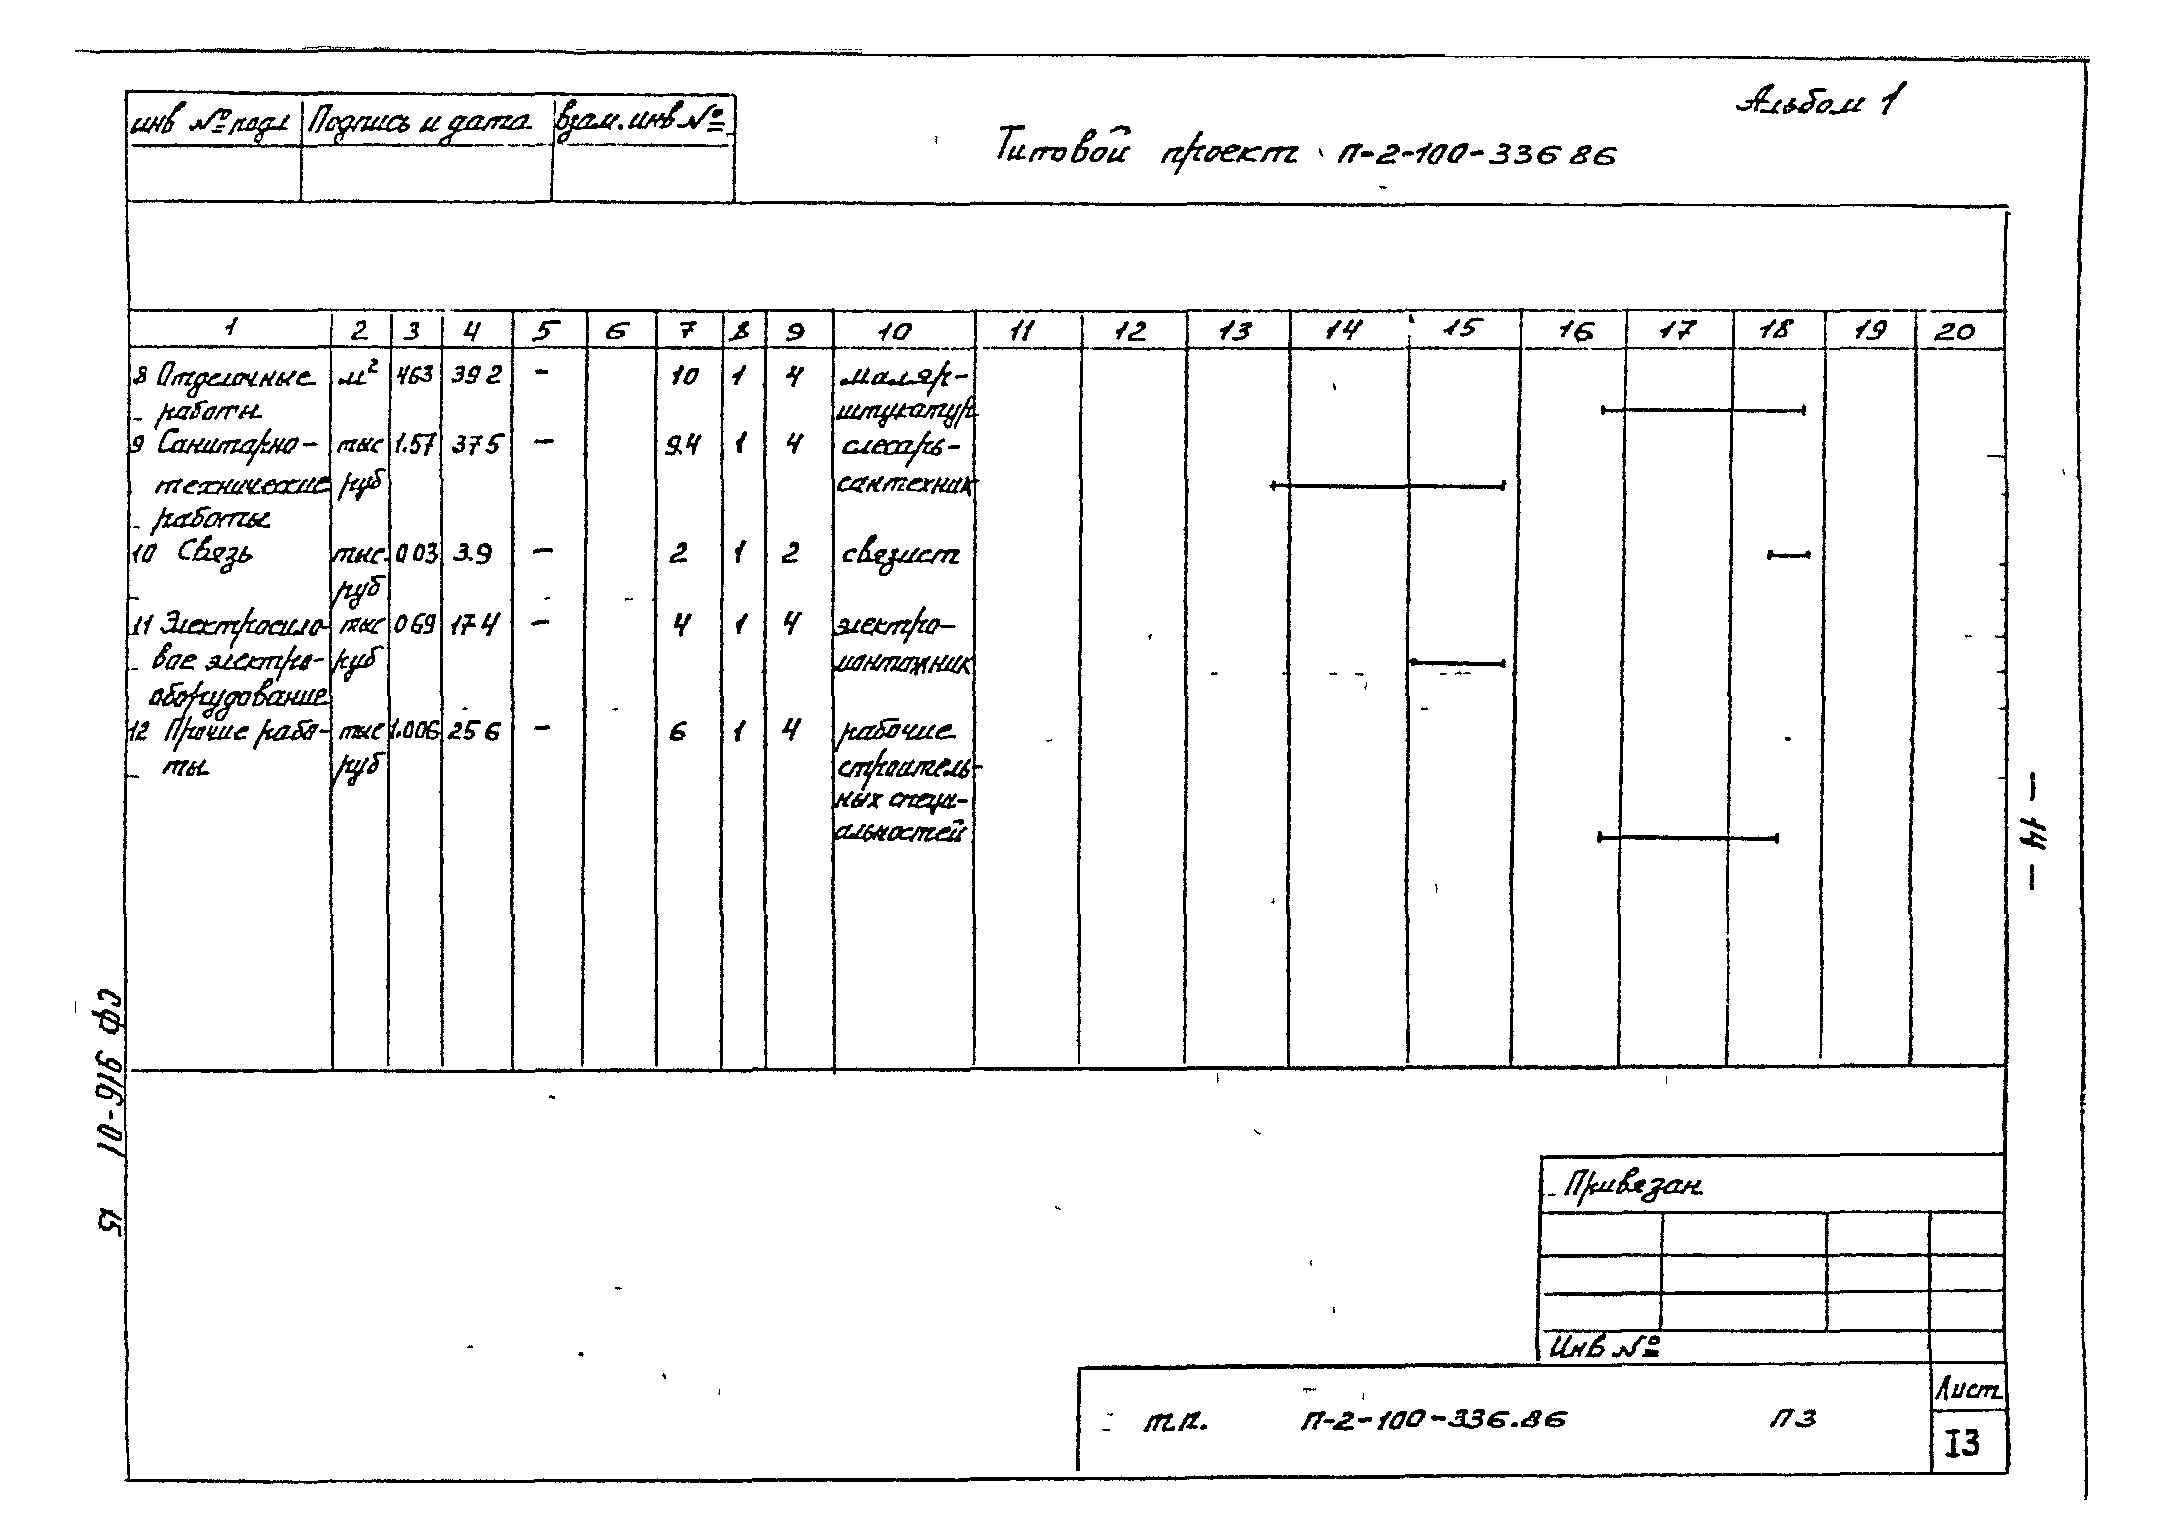 Альбом 1
инв № подл Подпись и дата взам. инв №
Типовой проект П-2-100-336 86
1 2 3 4 5 6 7 8 9 10 11 12 13 14 15 16 17 18 19 20
8 Отделочные м² 463 39 2 – 10 1 4 маляр-
работы штукатур
9 Санитарно- тыс 1.57 37 5 – 9.4 1 4 слесарь-
технические руб сантехник
работы
10 Связь тыс. 0 03 3.9 – 2 1 2 связист
руб
11 Электросило- тыс 0 69 17 4 – 4 1 4 электро-
вое электро- руб монтажник
оборудование
12 Прочие рабо- тыс 1.006 25 6 – 6 1 4 рабочие
ты руб строитель-
ных специ-
альностей
– 14 –
сф 916-01 15
Привязан
Инв №
т.п. П-2-100-336.86 ПЗ
Лист
13